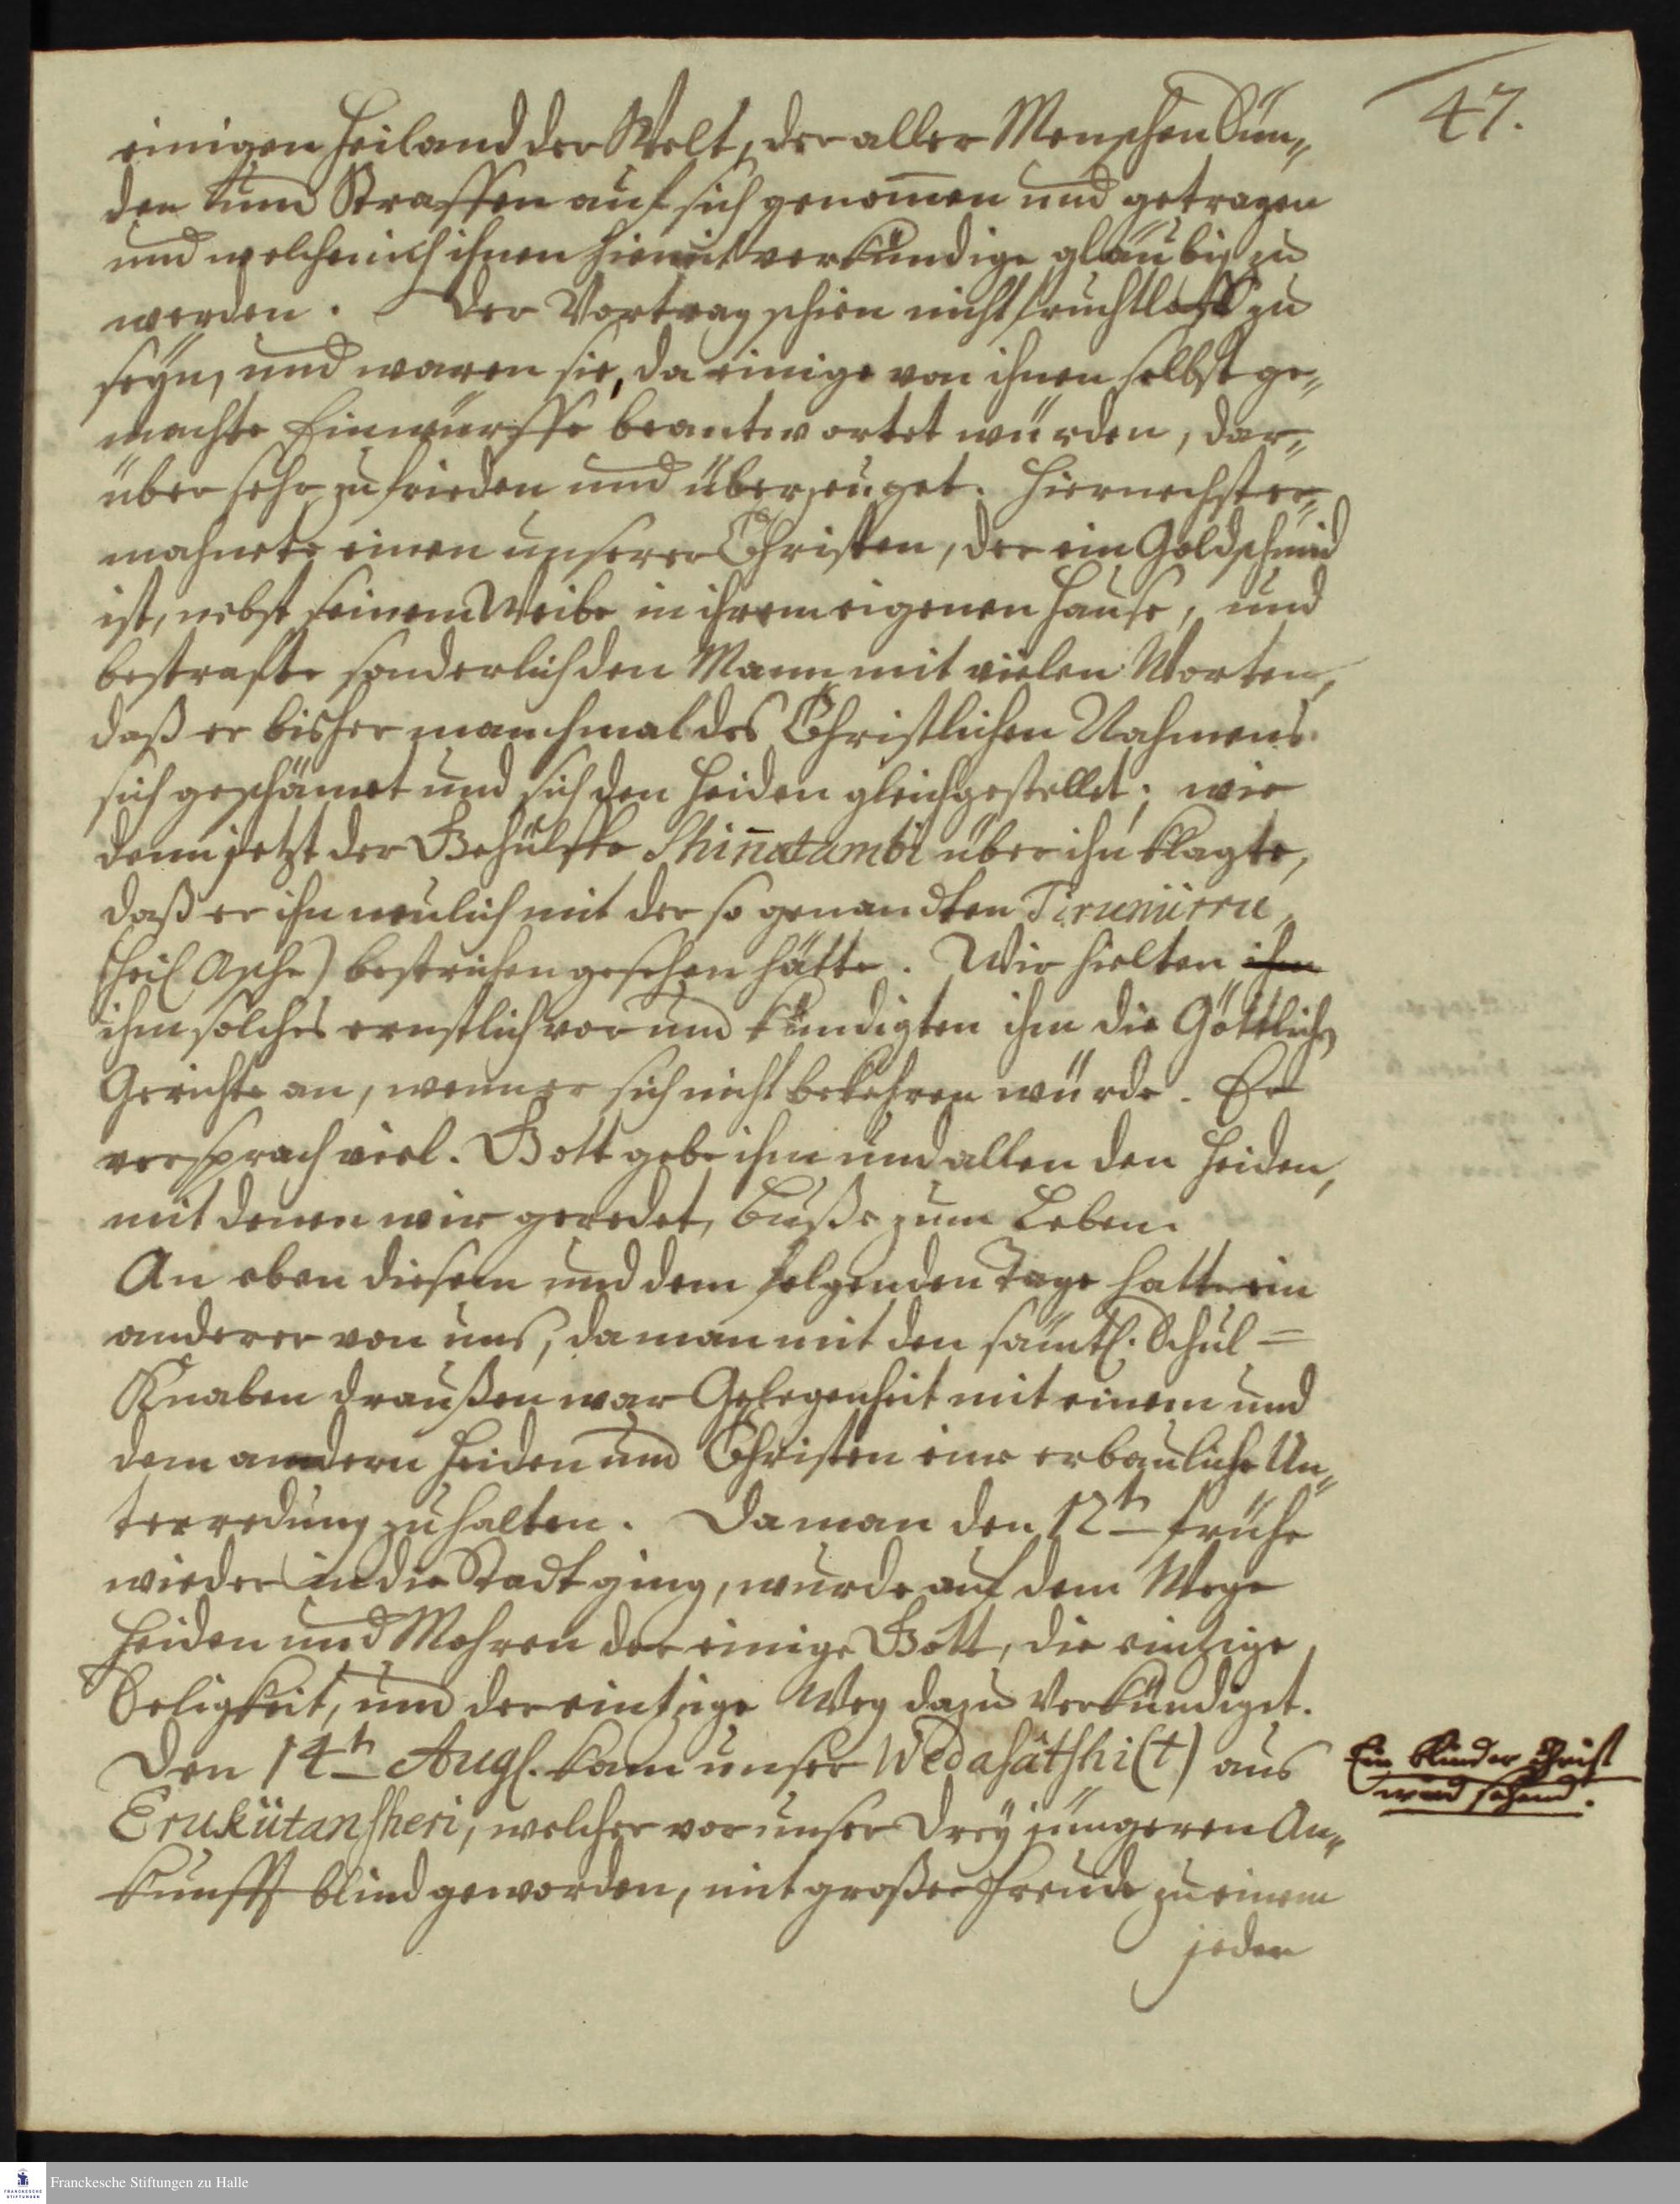 47.
einigen Heiland der Welt, der aller Menschen Sün„
den und Straffen auf sich genom̅en und getragen
und welchen ich ihnen hiemit verkündige gläubig zu
werden. Der Vortrag schien nicht fruchtloß zu
seÿn, und waren sie, da einige von ihnen selbst ge„
machte Einwürffe beantwortet würden, dar„
über sehr zufrieden und überzeuget. Hiernechst er„
mahnete einen unserer Christen, der ein Goldschmid
ist, nebst seinem Weibe in ihrem eigenen Hause, und
bestrafte sonderlich den Mann mit vielen Worten,
daß er bisher manchmal des Christlichen Nahmens
sich geschämet und sich den Heiden gleichgestellet; wie
denn jetzt der Gehülffe Shin̅atambi über ihn klagte,
daß er ihn neulich mit der so genandten Tirunürru
(heil Asche) bestrichen gesehen hätte. Wir hielten ihm
ihm solches ernstlich vor und kündigten ihm die Göttliche
Gerichte an, wenn er sich nicht bekehren würde. Er
versprach viel. Gott gebe ihm und allen den Heiden,
mit denen wir geredet, Buße zum Leben.
An eben diesem und dem folgenden Tage hatte ein
anderer von uns, da man mit den sämtl. Schul=
Knaben draußen war Gelegenheit mit einem und
dem andern Heiden und Christen eine erbauliche Un„
terredung zu halten. Da man den 12th frühe
wieder in die Stadt ging, wurde auf dem Wege
Heiden und Mohren der einige Gott, die eintzige
Seligkeit, und der eintzige Weg dazu verkündiget.
Den 14th Augl. kam unser Wedasâtshi(t) aus
Erukütansheri, welcher vor unser dreÿ jüngeren An„
kunfft blind geworden, mit großer Freude zu einem
jeden
Ein blinder Christ
wird sehend.
Franckesche Stiftungen zu Halle
FRANCKESCHE
STIFTUNGEN